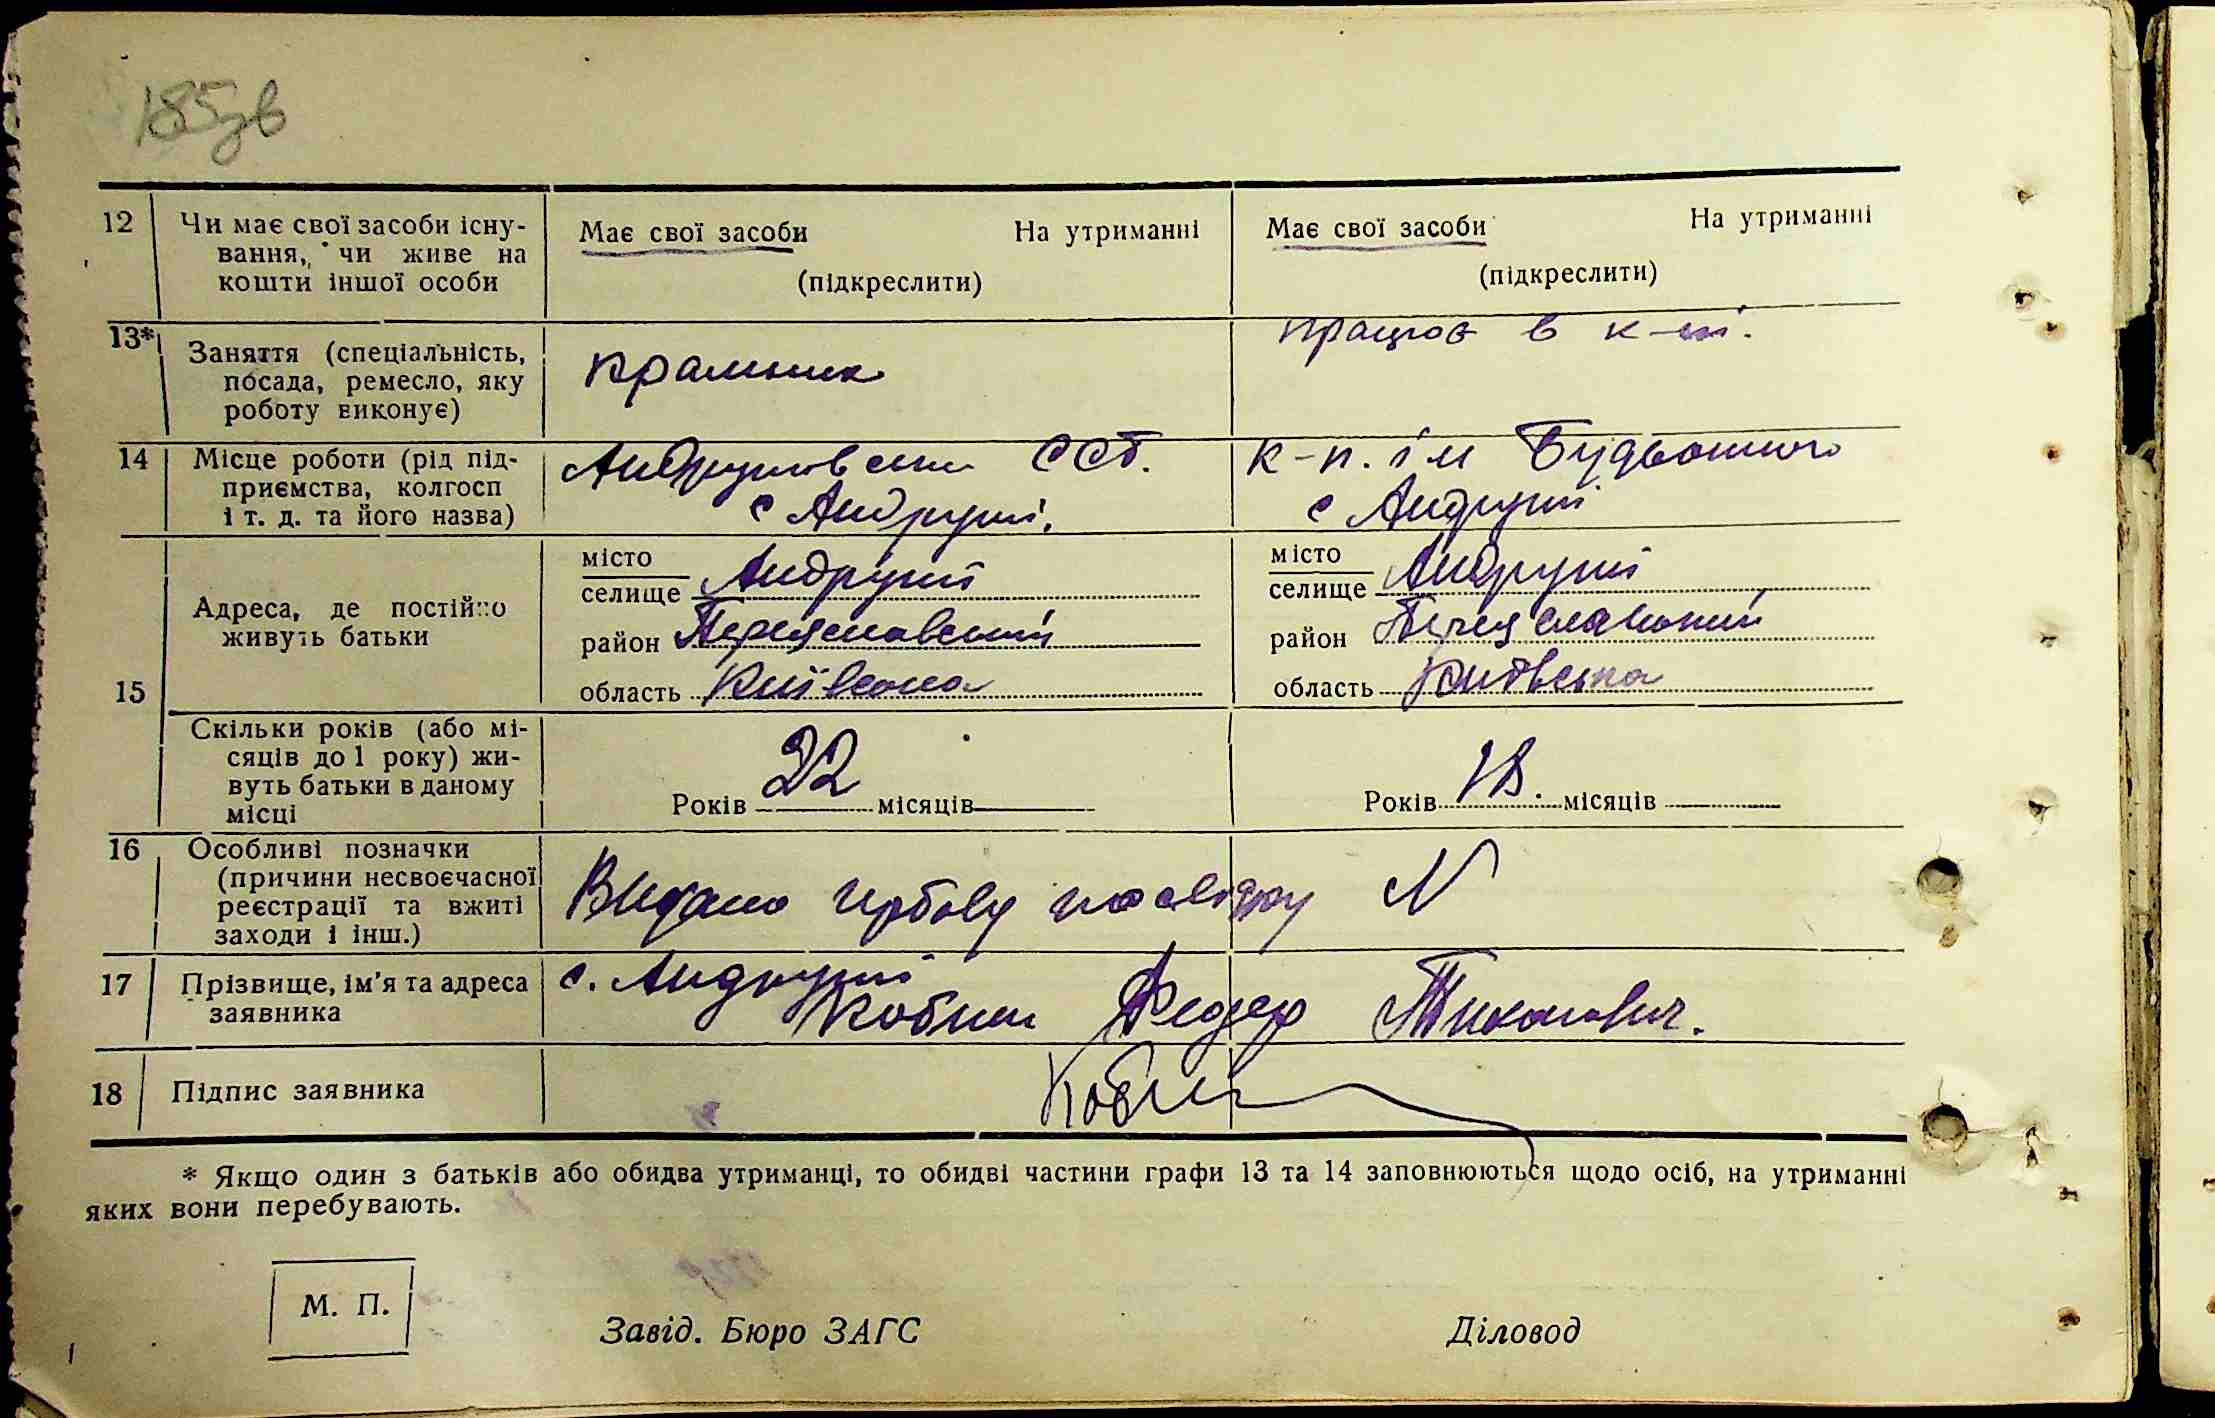 185зв
12 Чи має свої засоби існу-
вання, чи живе на
кошти іншої особи
Має свої засоби На утриманні
(підкреслити)
Має свої засоби На утриманні
(підкреслити)
13* Заняття (спеціальність,
посада, ремесло, яку
роботу виконує)
крамник
працює в к-пі.
14 Місце роботи (рід під-
приємства, колгосп
і т. д. та його назва)
ССТ.
с Андруші.
к-п. ім Будьонного
с Андруші
15 Адреса, де постійно
живуть батьки
місто
селище Андруші
район Переяславський
область Київська
місто
селище Андруші
район Переяславський
область Київська
Скільки років (або мі-
сяців до 1 року) жи-
вуть батьки в даному
місці
Років 22 місяців
Років 18. місяців
16 Особливі позначки
(причини несвоєчасної
реєстрації та вжиті
заходи і інш.)
Видано гербову посвідку N
17 Прізвище, ім'я та адреса
заявника
с. Андруші
Кобик Федер Тихонович.
18 Підпис заявника
* Якщо один з батьків або обидва утриманці, то обидві частини графи 13 та 14 заповнюються щодо осіб, на утриманні
яких вони перебувають.
М. П.
Завід. Бюро ЗАГС
Діловод